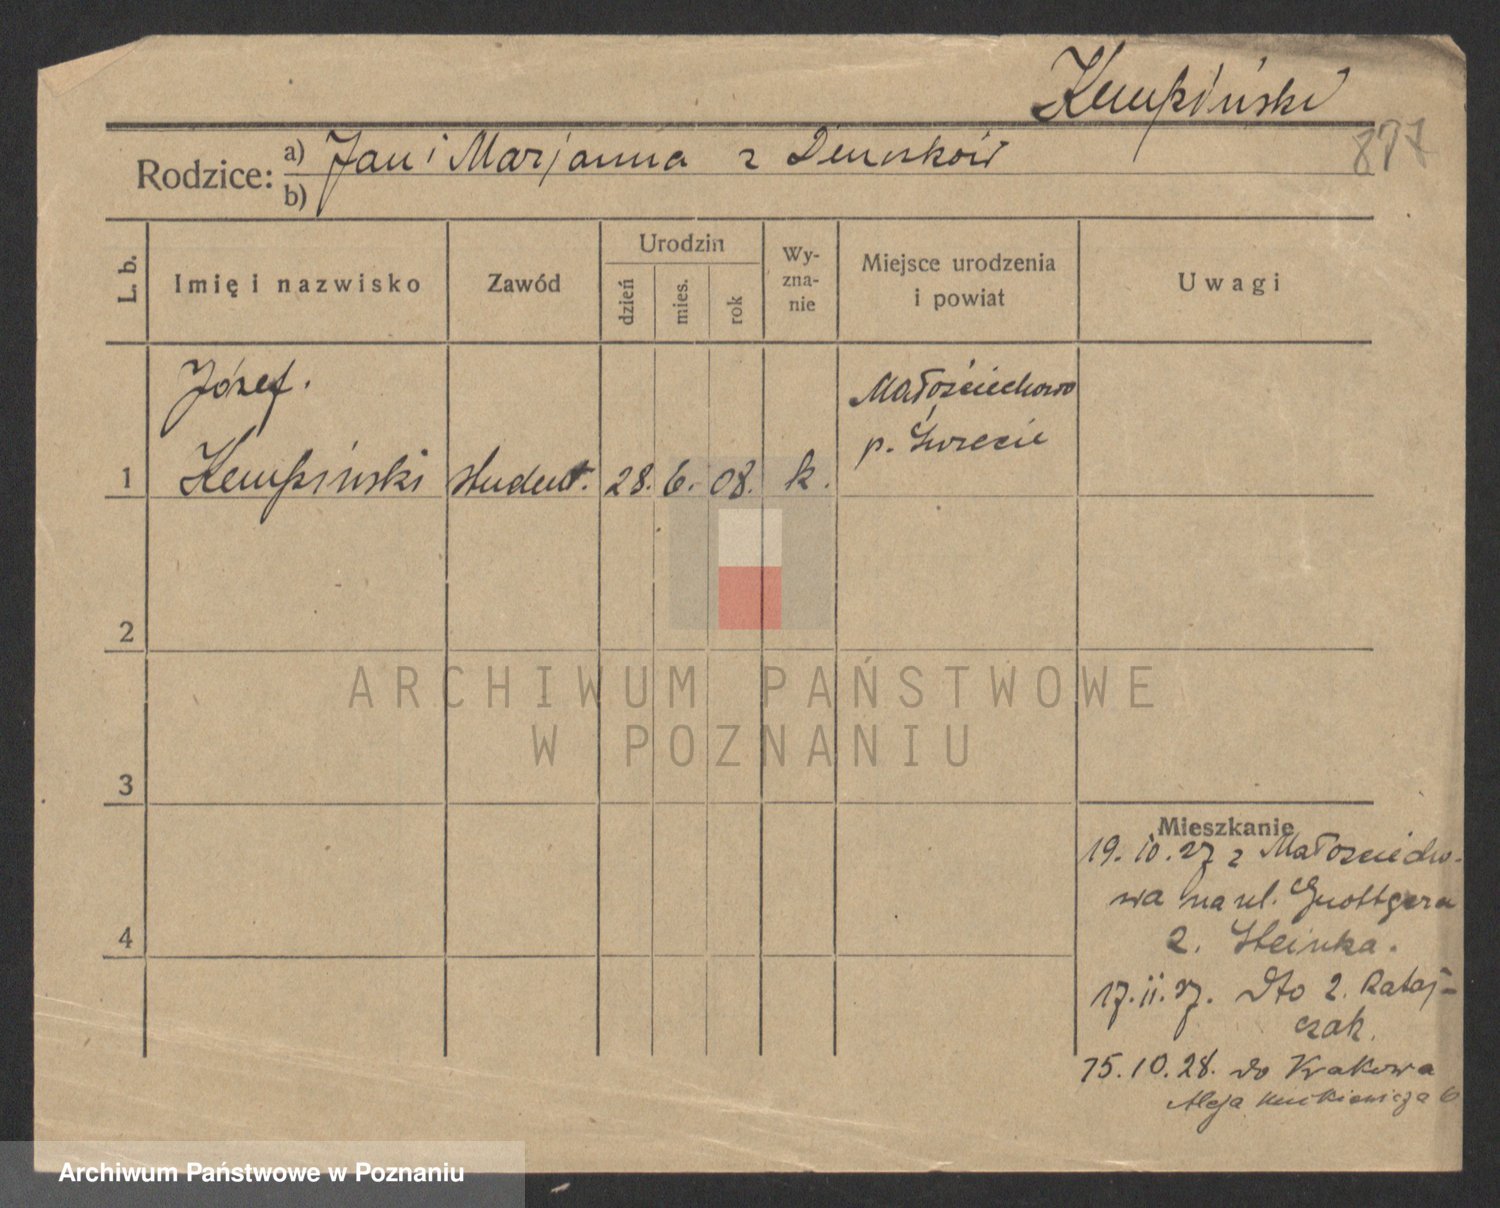 Kempiński
877
Rodzice: a) Jan i Marjanna z Demskow
b)
L. b. Imię i nazwisko Zawód Urodzin dzień mies. rok Wy-zna-nie Miejsce urodzenia i powiat Uwagi
Józef. Małościechowo
p. Świecie
1 Kempiński student. 28. 6. 08. k.
2
ARCHIWUM PAŃSTWOWE
W POZNANIU
3
Mieszkanie
19.10.27 z Małościecho-
wa na ul. Grottgera
4 2. Steinka.
17.11.27. Dto 2. Rataj-
czak.
15.10.28. do Krakowa
Aleja Mickiewicza 6
Archiwum Państwowe w Poznaniu